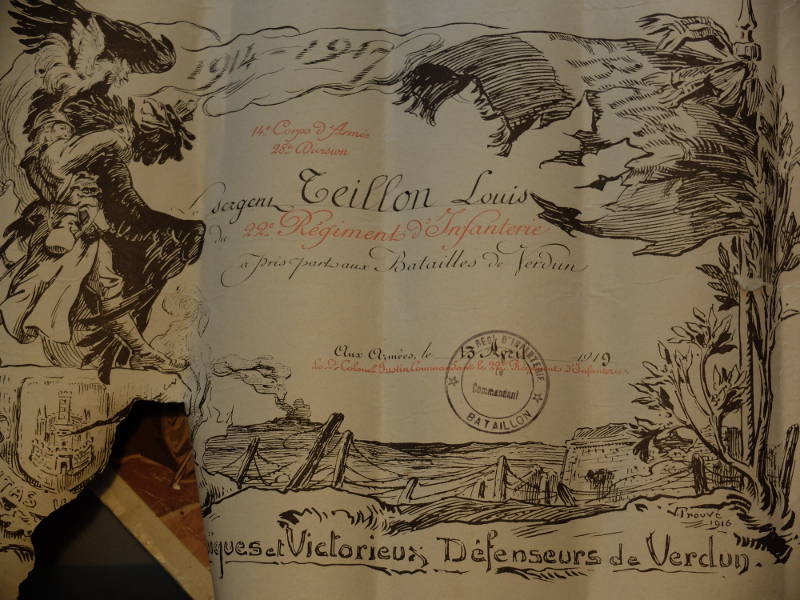 1914-1917
14e Corps d'Armée
28e Division
Le sergent Teillon Louis
du 22e Régiment d'Infanterie
a pris part aux Batailles de Verdun
Aux Armées, le 13 Avril 1919
Le Lt Colonel Commandant le 22e Régiment d'Infanterie
REGt D'INFANTERIE
Commandant
BATAILLON
V. Prouvé
1916
iques et Victorieux Défenseurs de Verdun.